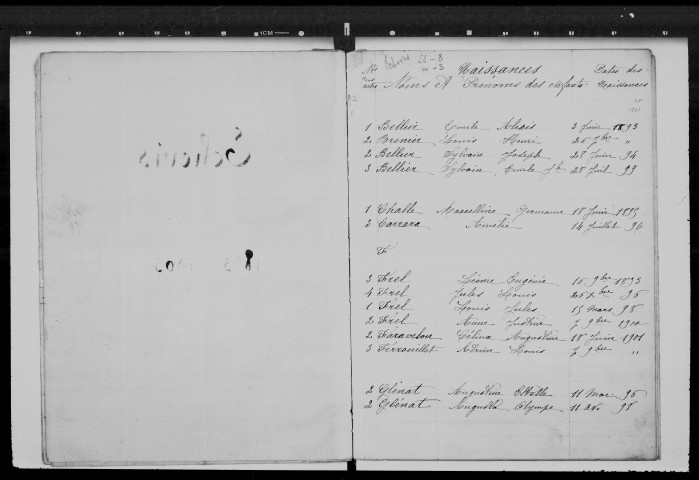 1CM
Nos Naissances Dates des
Noms et Prénoms des enfants Naissances
1 Bellier Emile Alexis 3 Juin 1893
2 Brenier Louis Henri 26 7bre "
2 Bellier Sylvain Joseph 28 Juin 94
3 Bellier Sylvain Emile 28 Juil 99
1 Challe Marcelline Germaine 18 Juin 1895
3 Carrara Amélie 14 Juillet 96
F
3 Frel Léonie Eugénie 15 9bre 1893
4 Frel Jules Louis 26 Xbre 95
1 Frel Louis Jules 15 Mars 98
2 Frel Anne Justine 7 9bre 1900
2 Faravelon Célina Augustine 18 Juin 1901
3 Ferrouillet Adrien Louis 7 9bre "
2 Glénat Augustine Estelle 11 Mar 96
2 Glénat Augusta Olympe 11 Avr 98